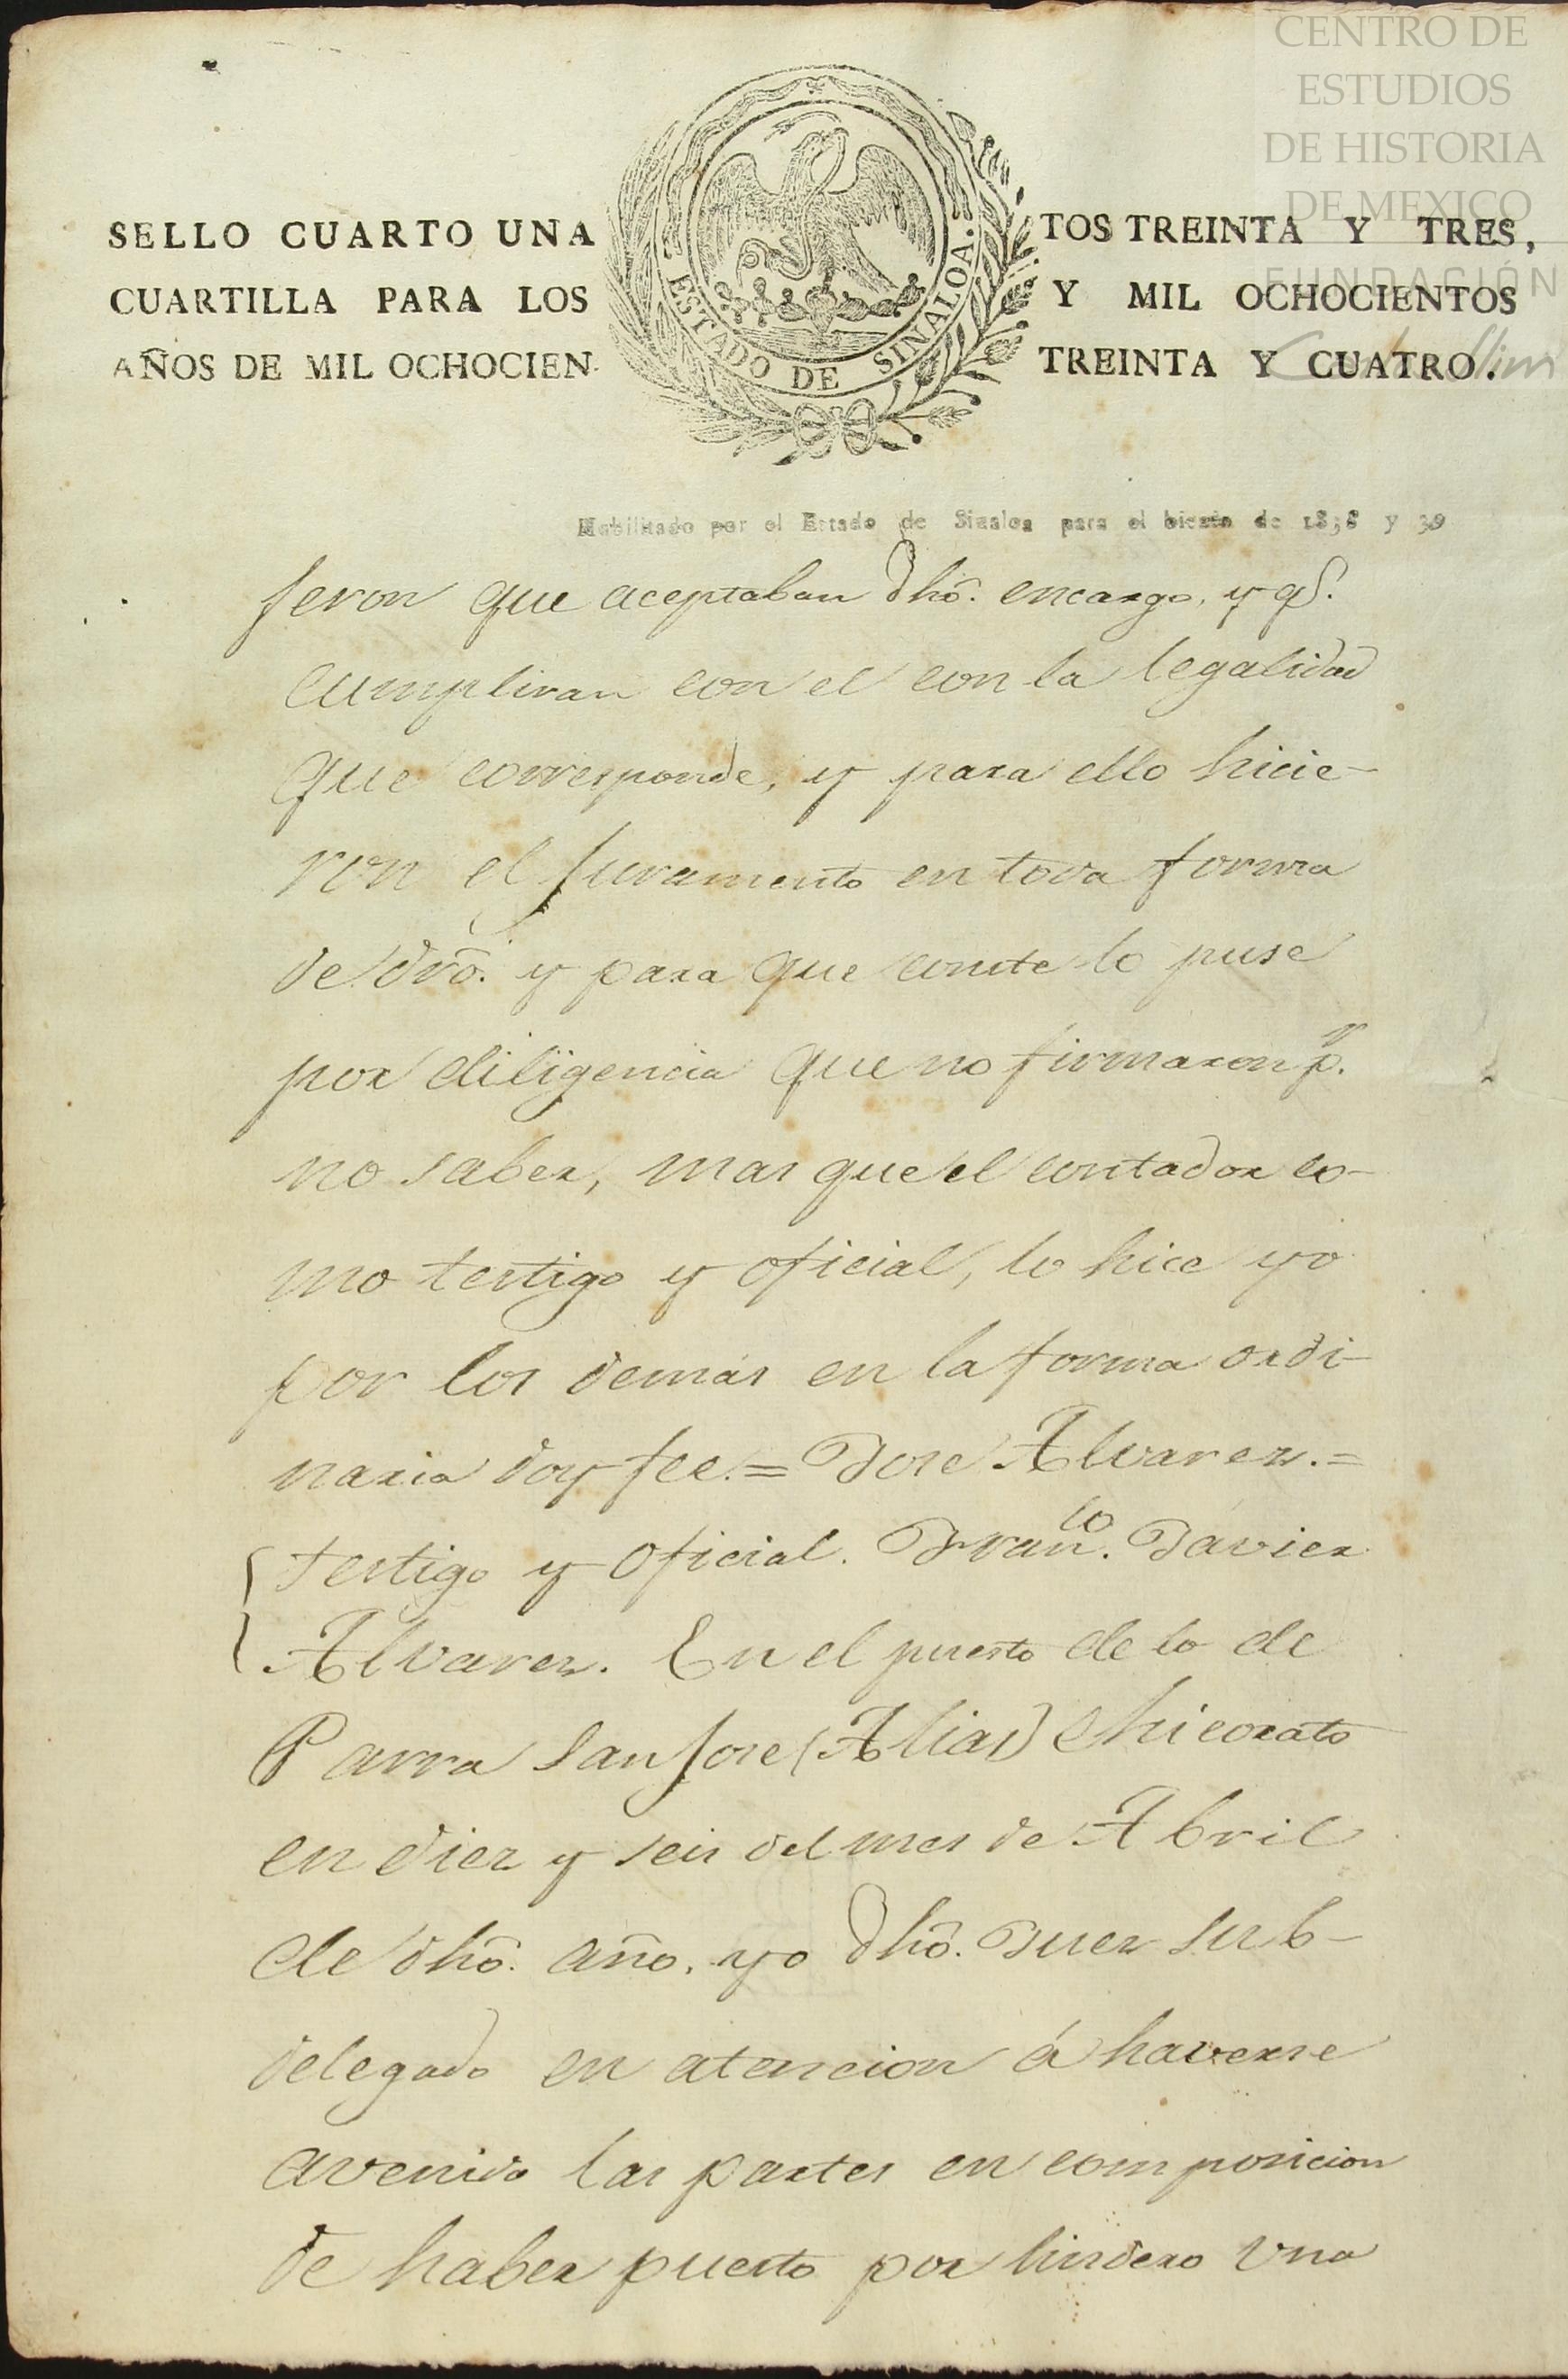 CENTRO DE
ESTUDIOS
DE HISTORIA
DE MEXICO
FUNDACIÓN
SELLO CUARTO UNA
CUARTILLA PARA LOS
AÑOS DE MIL OCHOCIEN-
ESTADO DE SINALOA.
TOS TREINTA Y TRES,
Y MIL OCHOCIENTOS
TREINTA Y CUATRO.
Habilitado por el Estado de Sinaloa para el bienio de 1838 y 39
jeron que aceptaban dhô. encargo, y qe.
cumpliran con el con la legalidad
que corresponde, y para ello hicie-
ron el juramento en toda forma
de drô. y para que conste lo puse
por diligencia que no firmaron pr.
no saber, mas que el contador co-
mo testigo y oficial, lo hice yo
por los demás en la forma ordi-
naria doy fee.= Jose Alvarez.=
testigo y oficial. Franco. Javier
Alvarez. En el puesto de lo de
Parra San Jose (Alias) Chicorato
en diez y seis del mes de Abril
de dhô. año, yo dhô. Juez sub-
delegado en atencion á haverse
avenido las partes en composicion
de haber puesto por lindero una